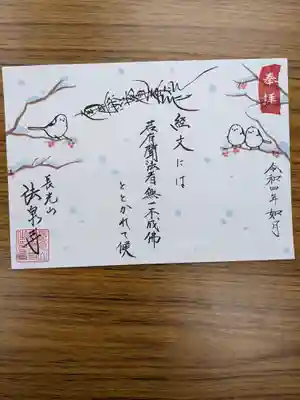 奉拝
令和四年如月
経文には
若有聞法者無一不成佛
ととかれて候
長光山
法泉寺